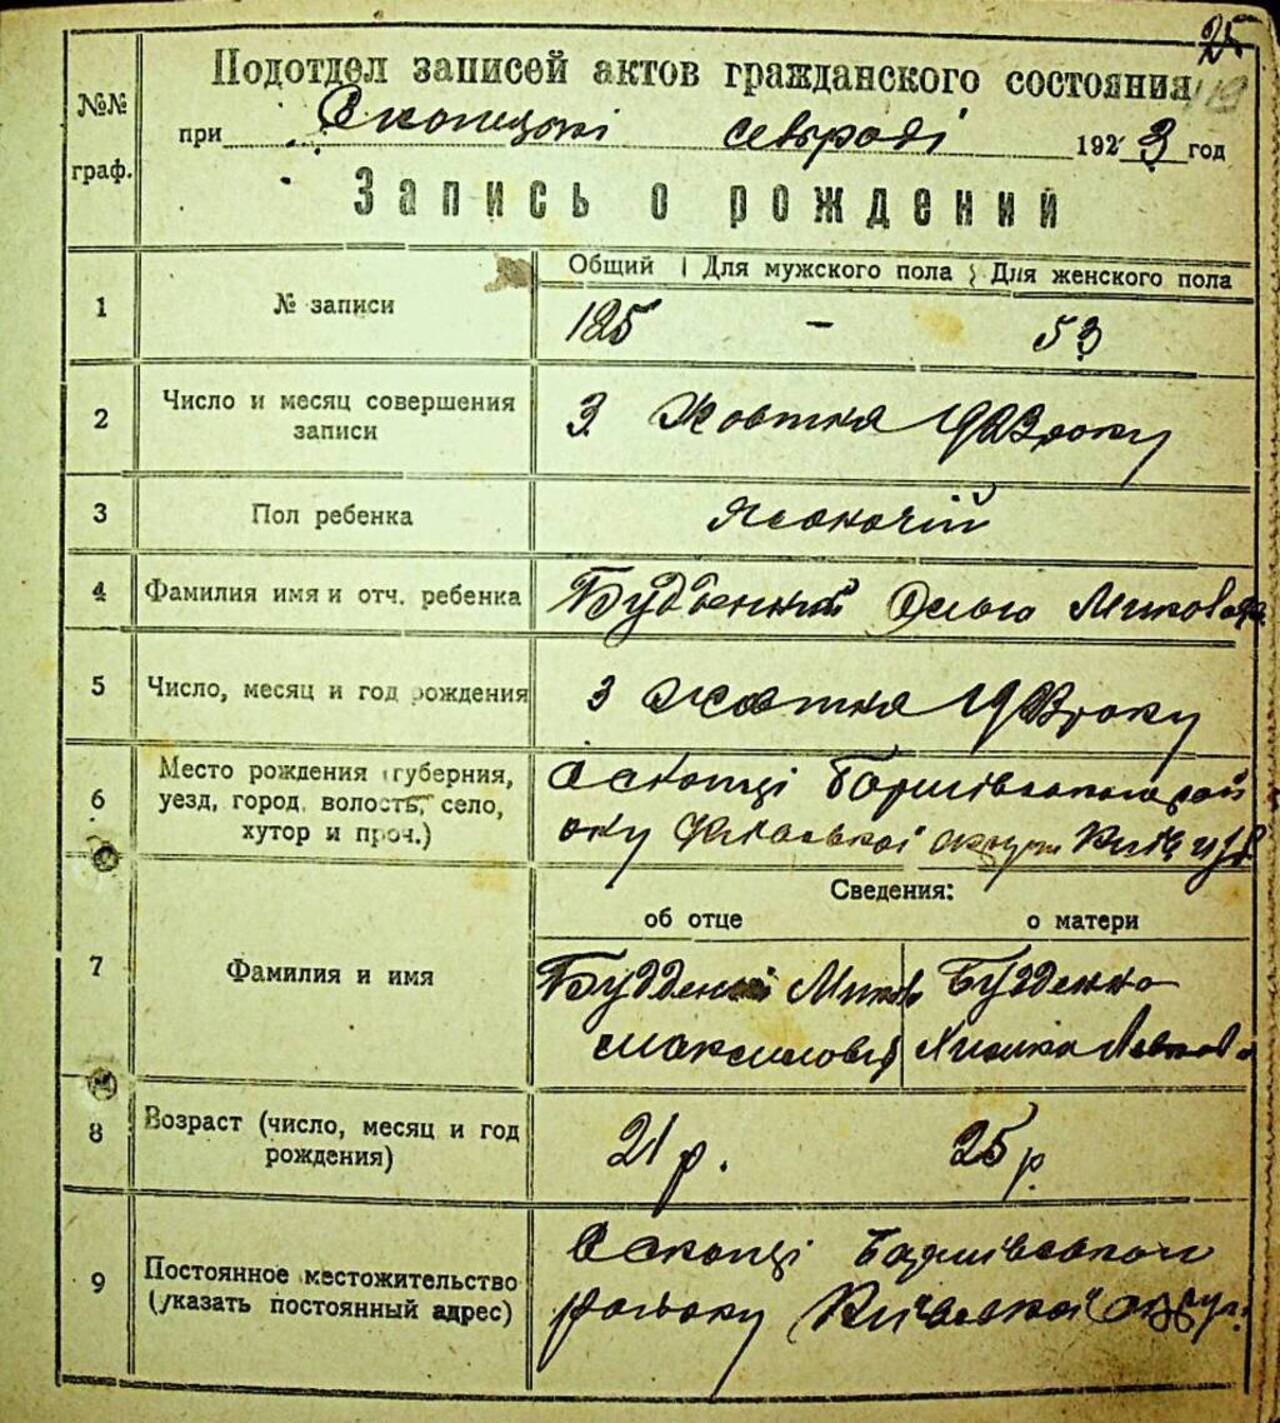 25
Подотдел записей актов гражданского состояния
№№ граф.
при Скопецькі 1923 год
Запись о рождении
Общий Для мужского пола Для женского пола
1 № записи 125 - 53
2 Число и месяц совершения записи 3 Жовтня 1923 року
3 Пол ребенка жіночий
4 Фамилия имя и отч. ребенка Ольга
5 Число, месяц и год рождения 3 жовтня 1923 року
6 Место рождения (губерния, уезд, город, волость, село, хутор и проч.) с Скопці
Київської округи
Сведения:
об отце о матери
7 Фамилия и имя
Максимович
8 Возраст (число, месяц и год рождения) 21 р. 25 р.
9 Постоянное местожительство (указать постоянный адрес) с Скопці
району Київської округ.